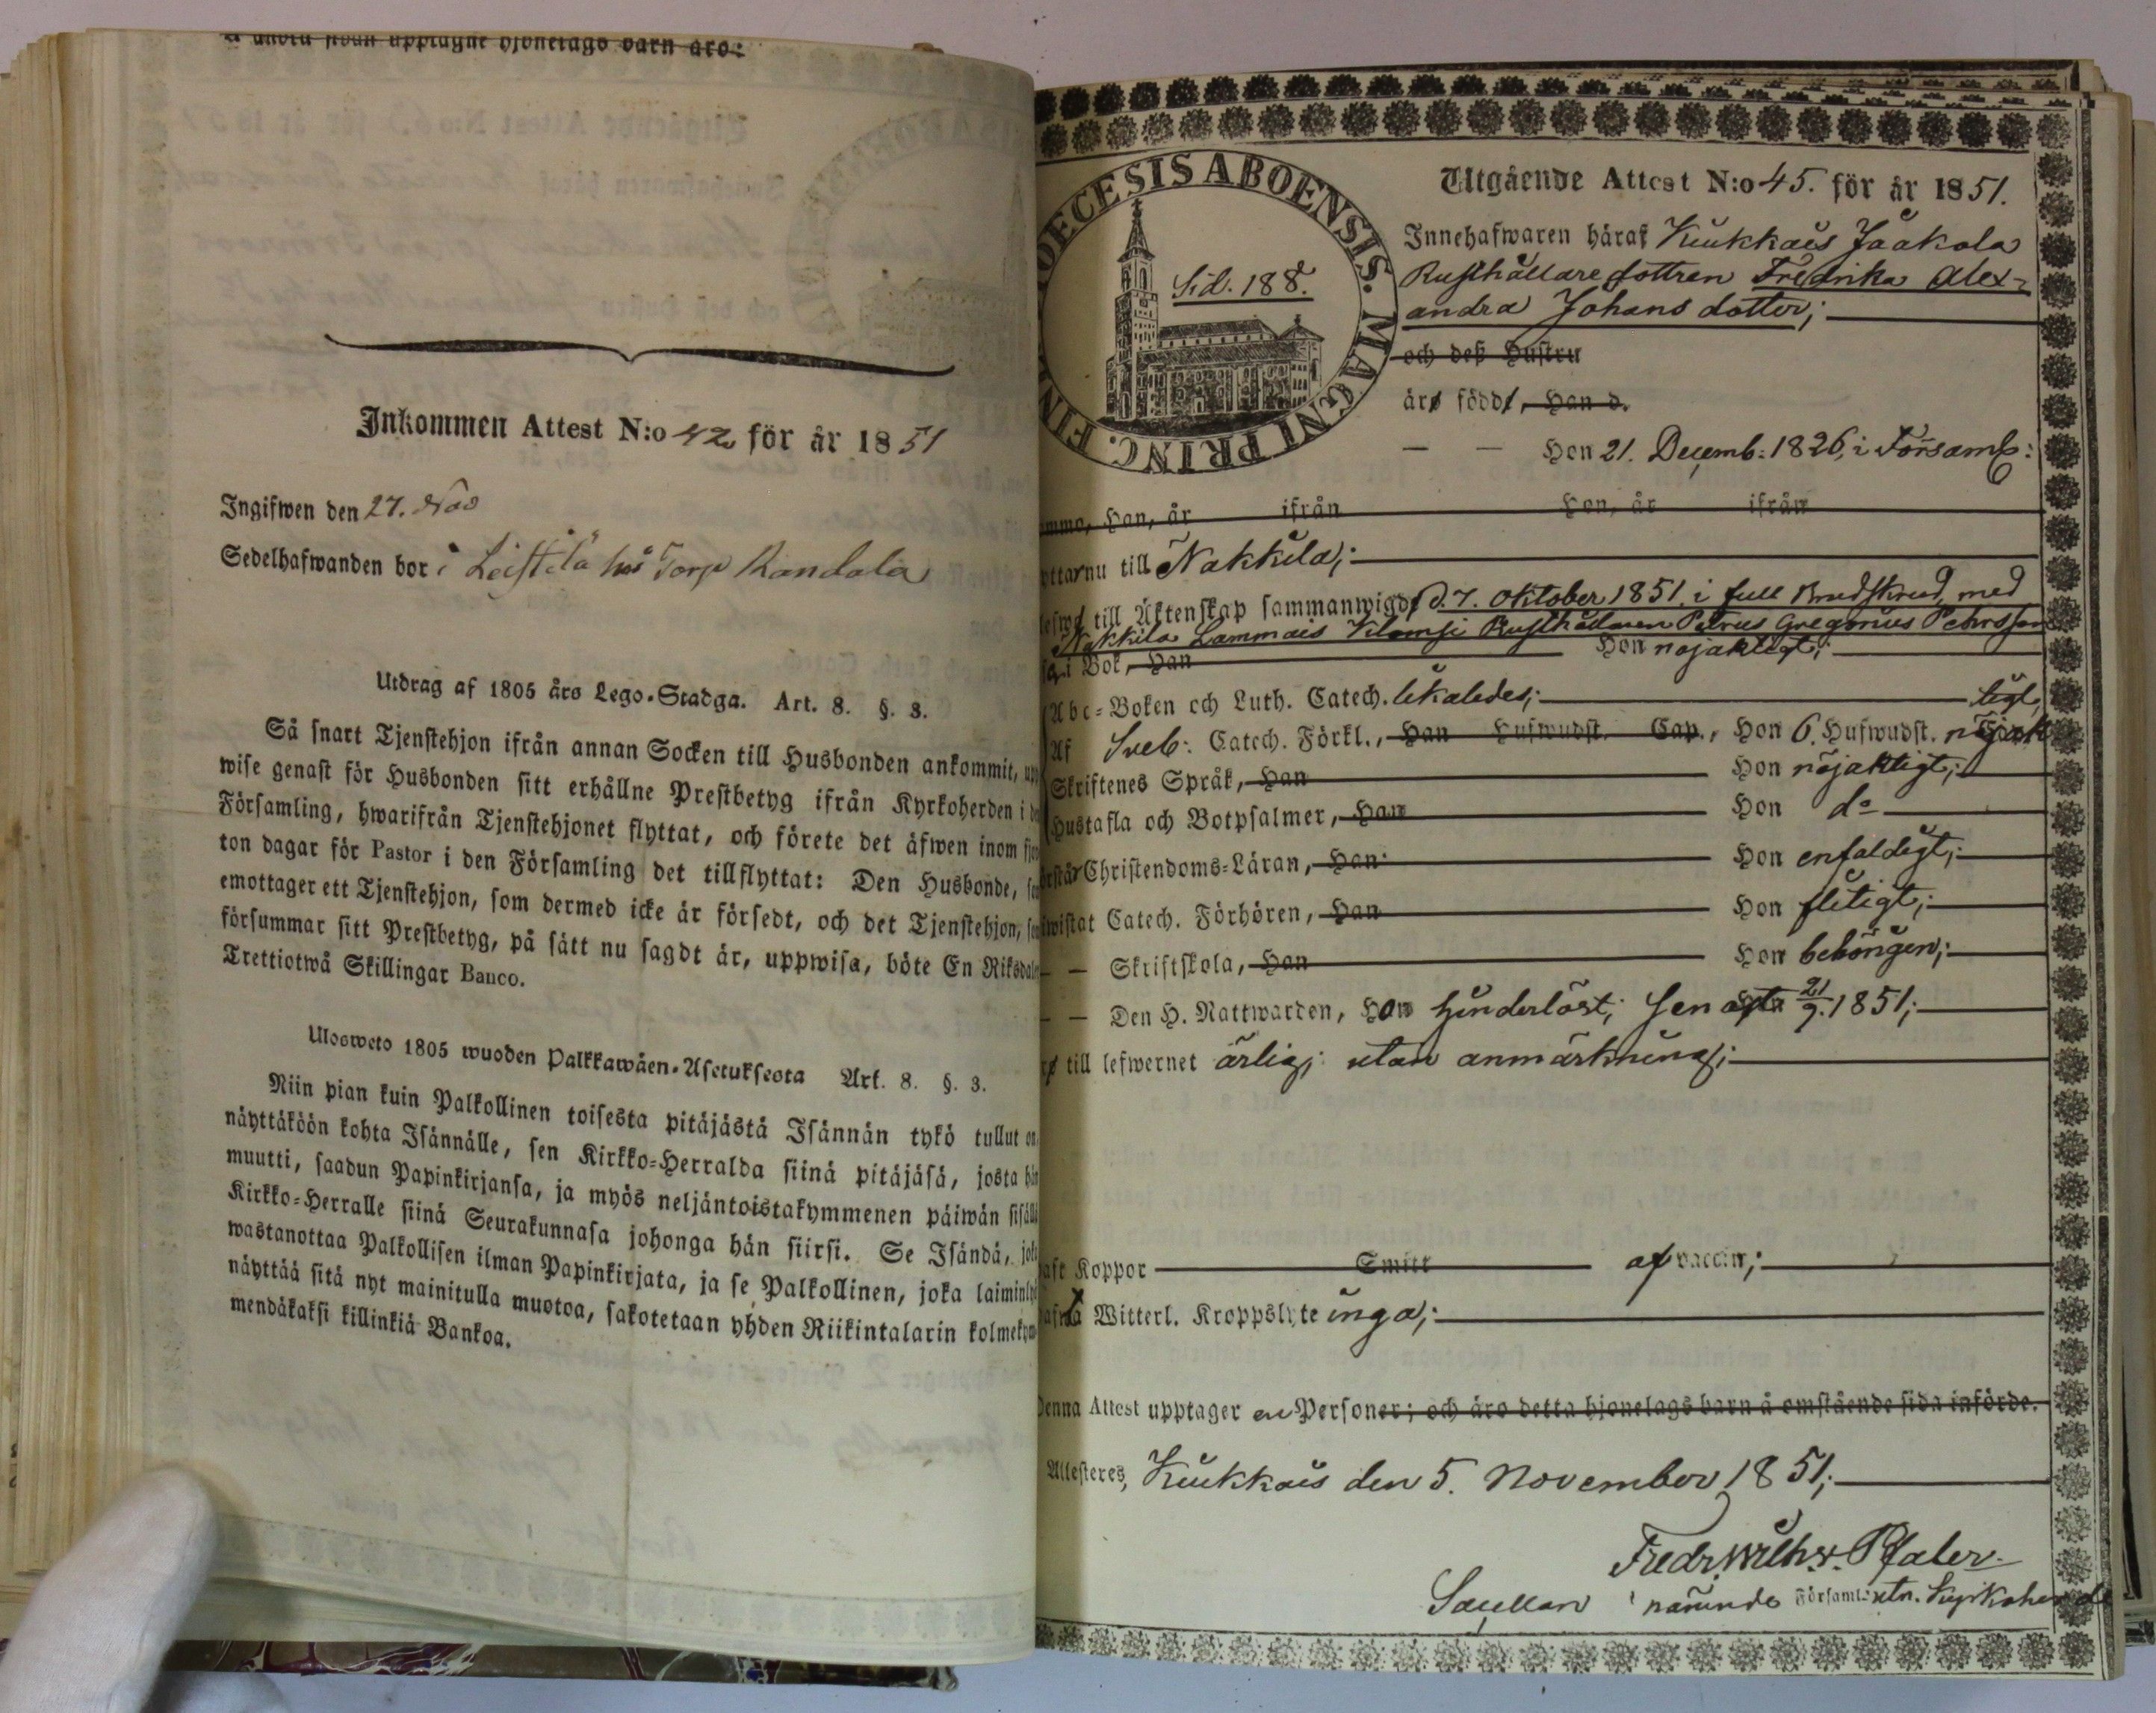 å andra sidan upptagne hjonelags barn äro:
Inkommen Attest N:o 42 för år 1851
Ingifwen den 27. Nov
Sedelhafwanden bor i Leistilä hos Torp Kandala
Utdrag af 1805 års Lego-Stadga. Art. 8. §. 3.
Så snart Tjenstehjon ifrån annan Socken till Husbonden ankommit, upp
wise genast för Husbonden sitt erhållne Prestbetyg ifrån Kyrkoherden i de
Församling, hwarifrån Tjenstehjonet flyttat, och förete det äfwen inom fjor
ton dagar för Pastor i den Församling det tillflyttat: Den Husbonde, som
emottager ett Tjenstehjon, som dermed icke är försedt, och det Tjenstehjon, som
försummar sitt Prestbetyg, på sätt nu sagdt är, uppwisa, böte En Riksdaler
Trettiotwå Skillingar Banco.
Ulosweto 1805 wuoden Palkkawäen-Asetuksesta Art. 8. §. 3.
Niin pian kuin Palkollinen toisesta pitäjästä Isännän tykö tullut on,
näyttäköön kohta Isännälle, sen Kirkko-Herralda siinä pitäjäsä, josta hän
muutti, saadun Papinkirjansa, ja myös neljäntoistakymmenen päiwän sisällä
Kirkko-Herralle siinä Seurakunnasa johonga hän siirsi. Se Isändä, joka
wastanottaa Palkollisen ilman Papinkirjata, ja se Palkollinen, joka laiminlyö
näyttää sitä nyt mainitulla muotoa, sakotetaan yhden Riikintalarin kolmekym
mendäkaksi killinkiä Bankoa.
DIOECESIS ABOENSIS. MAGNI PRINC. FINL
Sid. 188.
Utgående Attest N:o 45. för år 1851.
Innehafwaren häraf Kiukkais Jaakola
Rusthållaredottren Fredrika Alex-
andra Johansdotter;
och deß Hustru
äro född, Han d.
— — Hon 21. Decemb: 1826, i Församl:
mma, Han, år ifrån Hon, år ifrån
yttar nu till Nakkila;
till Äktenskap sammanwigd d. 7. Oktober 1851. i full Brudskrud, med
Nakkila Lammais Rusthållaren Petrus Gregorius Pehrsson
i Bok, Han Hon nöjaktigt;
Abc-Boken och Luth. Catech. likaledes;
Af Sveb: Catech. Förkl., Han Hufwudst. Cap., Hon 6. Hufwudst. nöjaktligt
Skriftenes Språk, Han Hon nöjaktigt;
Hustafla och Botpsalmer, Han Hon do
Christendoms-Läran, Han Hon enfaldigt;
wistat Catech. Förhören, Han Hon flitigt;
— — Skriftskola, Han Hon behörigen;
— — Den H. Nattwarden, Hon hinderlöst; senast 21/9. 1851;
till lefwernet ärlig; utan anmärkning;
Koppor Smitt af vaccin;
Witterl. Kroppslyte inga;
Denna Attest upptager en Personer; och äro detta hjonelags barn å omstående sida införde.
Attesteres, Kiukkais den 5. November 1851;
Fredr. Wilh. Pfaler
nämnde Församl: Kyrkoherde